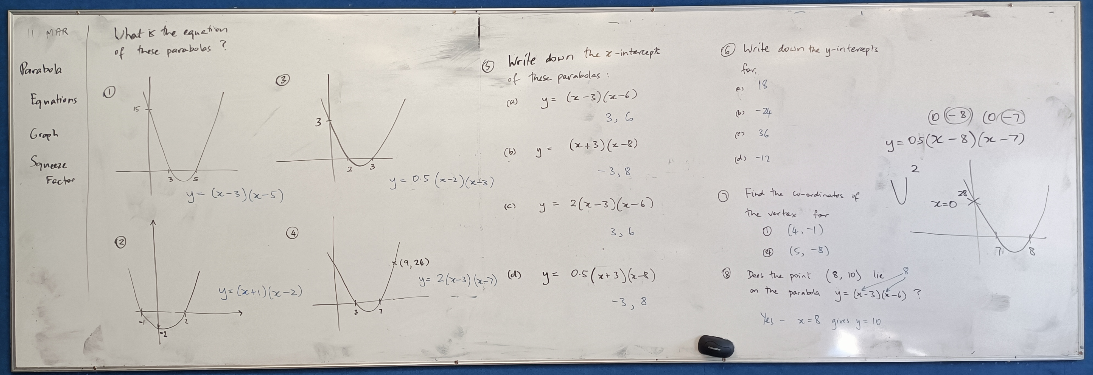 11 MAR
Parabola
Equations
Graph
Squeeze
Factor
What is the equation
of these parabolas ?
①
15
3 5
y = (x-3)(x-5)
②
-1 2
-2
y = (x+1)(x-2)
③
3
2 3
y = 0.5(x-2)(x-3)
④
(9, 26)
3 7
y = 2(x-3)(x-7)
⑤ Write down the x-intercepts
of these parabolas :
(a) y = (x-3)(x-6)
3, 6
(b) y = (x+3)(x-8)
-3, 8
(c) y = 2(x-3)(x-6)
3, 6
(d) y = 0.5(x+3)(x-8)
-3, 8
⑥ Write down the y-intercepts
for
(a) 18
(b) -24
(c) 36
(d) -12
⑦ Find the co-ordinates of
the vertex for
① (4, -1)
④ (5, -8)
⑧ Does the point (8, 10) lie
on the parabola y = (x-3)(x-6) ?
8
Yes - x=8 gives y=10
(0-8) (0-7)
y = 0.5(x-8)(x-7)
2
28
x=0
7 8